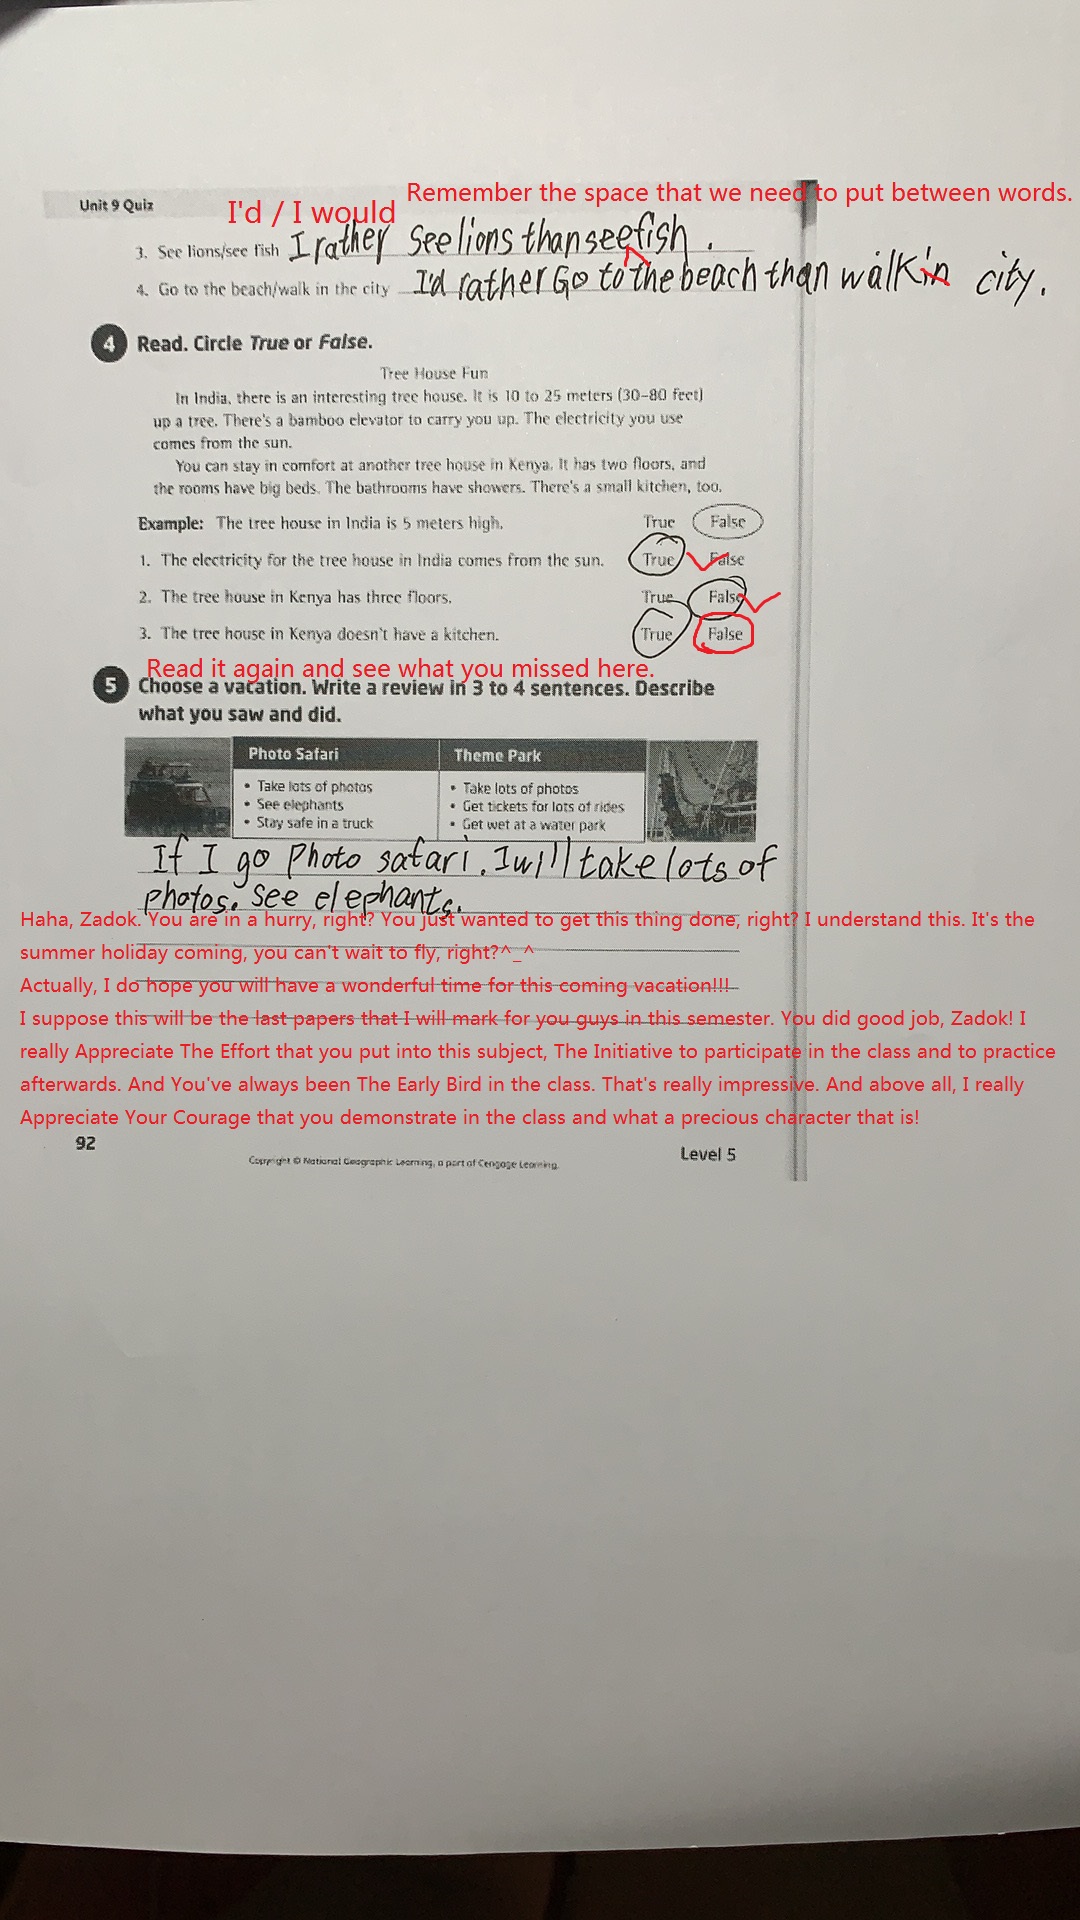 Remember the space that we need to put between words.
Unit 9 Quiz
I'd / I would
3. See lions/see fish I rather see lions than see fish.
4. Go to the beach/walk in the city I'd rather Go to the beach than walk in city.
4 Read. Circle True or False.
Tree House Fun
In India, there is an interesting tree house. It is 10 to 25 meters (30–80 feet)
up a tree. There's a bamboo elevator to carry you up. The electricity you use
comes from the sun.
You can stay in comfort at another tree house in Kenya. It has two floors, and
the rooms have big beds. The bathrooms have showers. There's a small kitchen, too.
Example: The tree house in India is 5 meters high. True False
1. The electricity for the tree house in India comes from the sun. True False
2. The tree house in Kenya has three floors. True False
3. The tree house in Kenya doesn't have a kitchen. True False
Read it again and see what you missed here.
5 Choose a vacation. Write a review in 3 to 4 sentences. Describe
what you saw and did.
Photo Safari Theme Park
• Take lots of photos • Take lots of photos
• See elephants • Get tickets for lots of rides
• Stay safe in a truck • Get wet at a water park
If I go Photo safari. I will take lots of
photos. see elephants.
Haha, Zadok. You are in a hurry, right? You just wanted to get this thing done, right? I understand this. It's the
summer holiday coming, you can't wait to fly, right?^_^
Actually, I do hope you will have a wonderful time for this coming vacation!!!
I suppose this will be the last papers that I will mark for you guys in this semester. You did good job, Zadok! I
really Appreciate The Effort that you put into this subject, The Initiative to participate in the class and to practice
afterwards. And You've always been The Early Bird in the class. That's really impressive. And above all, I really
Appreciate Your Courage that you demonstrate in the class and what a precious character that is!
92
Copyright © National Geographic Learning, a part of Cengage Learning.
Level 5